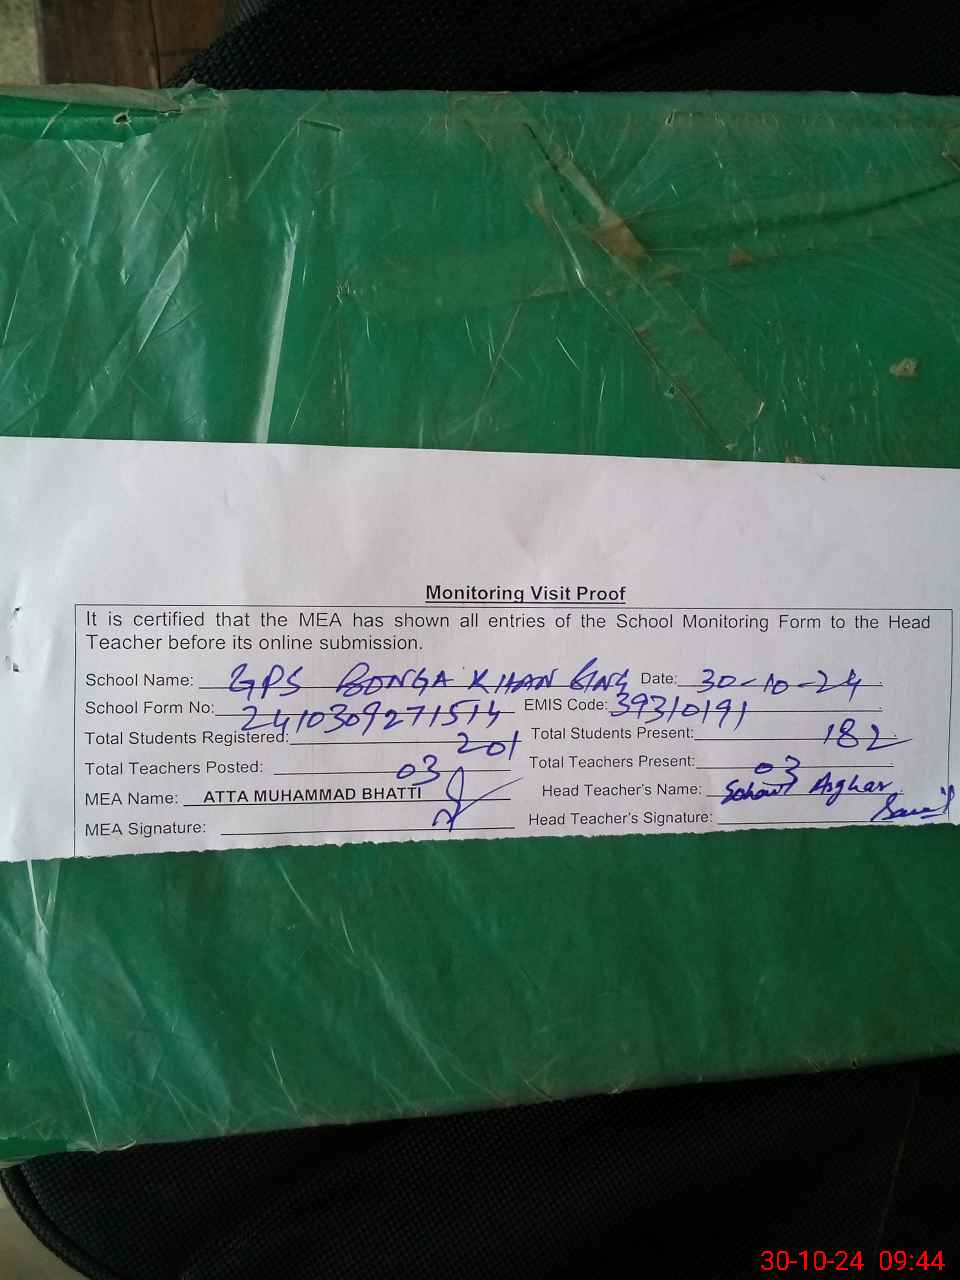 Monitoring Visit Proof
It is certified that the MEA has shown all entries of the School Monitoring Form to the Head
Teacher before its online submission.
School Name: GPS BONGA KHAN Date: 30-10-24
School Form No: 2410309271514 EMIS Code: 39310191
Total Students Registered: 201 Total Students Present: 182
Total Teachers Posted: 03 Total Teachers Present: 03
MEA Name: ATTA MUHAMMAD BHATTI Head Teacher's Name: Asghar
MEA Signature: Head Teacher's Signature:
30-10-24 09:44